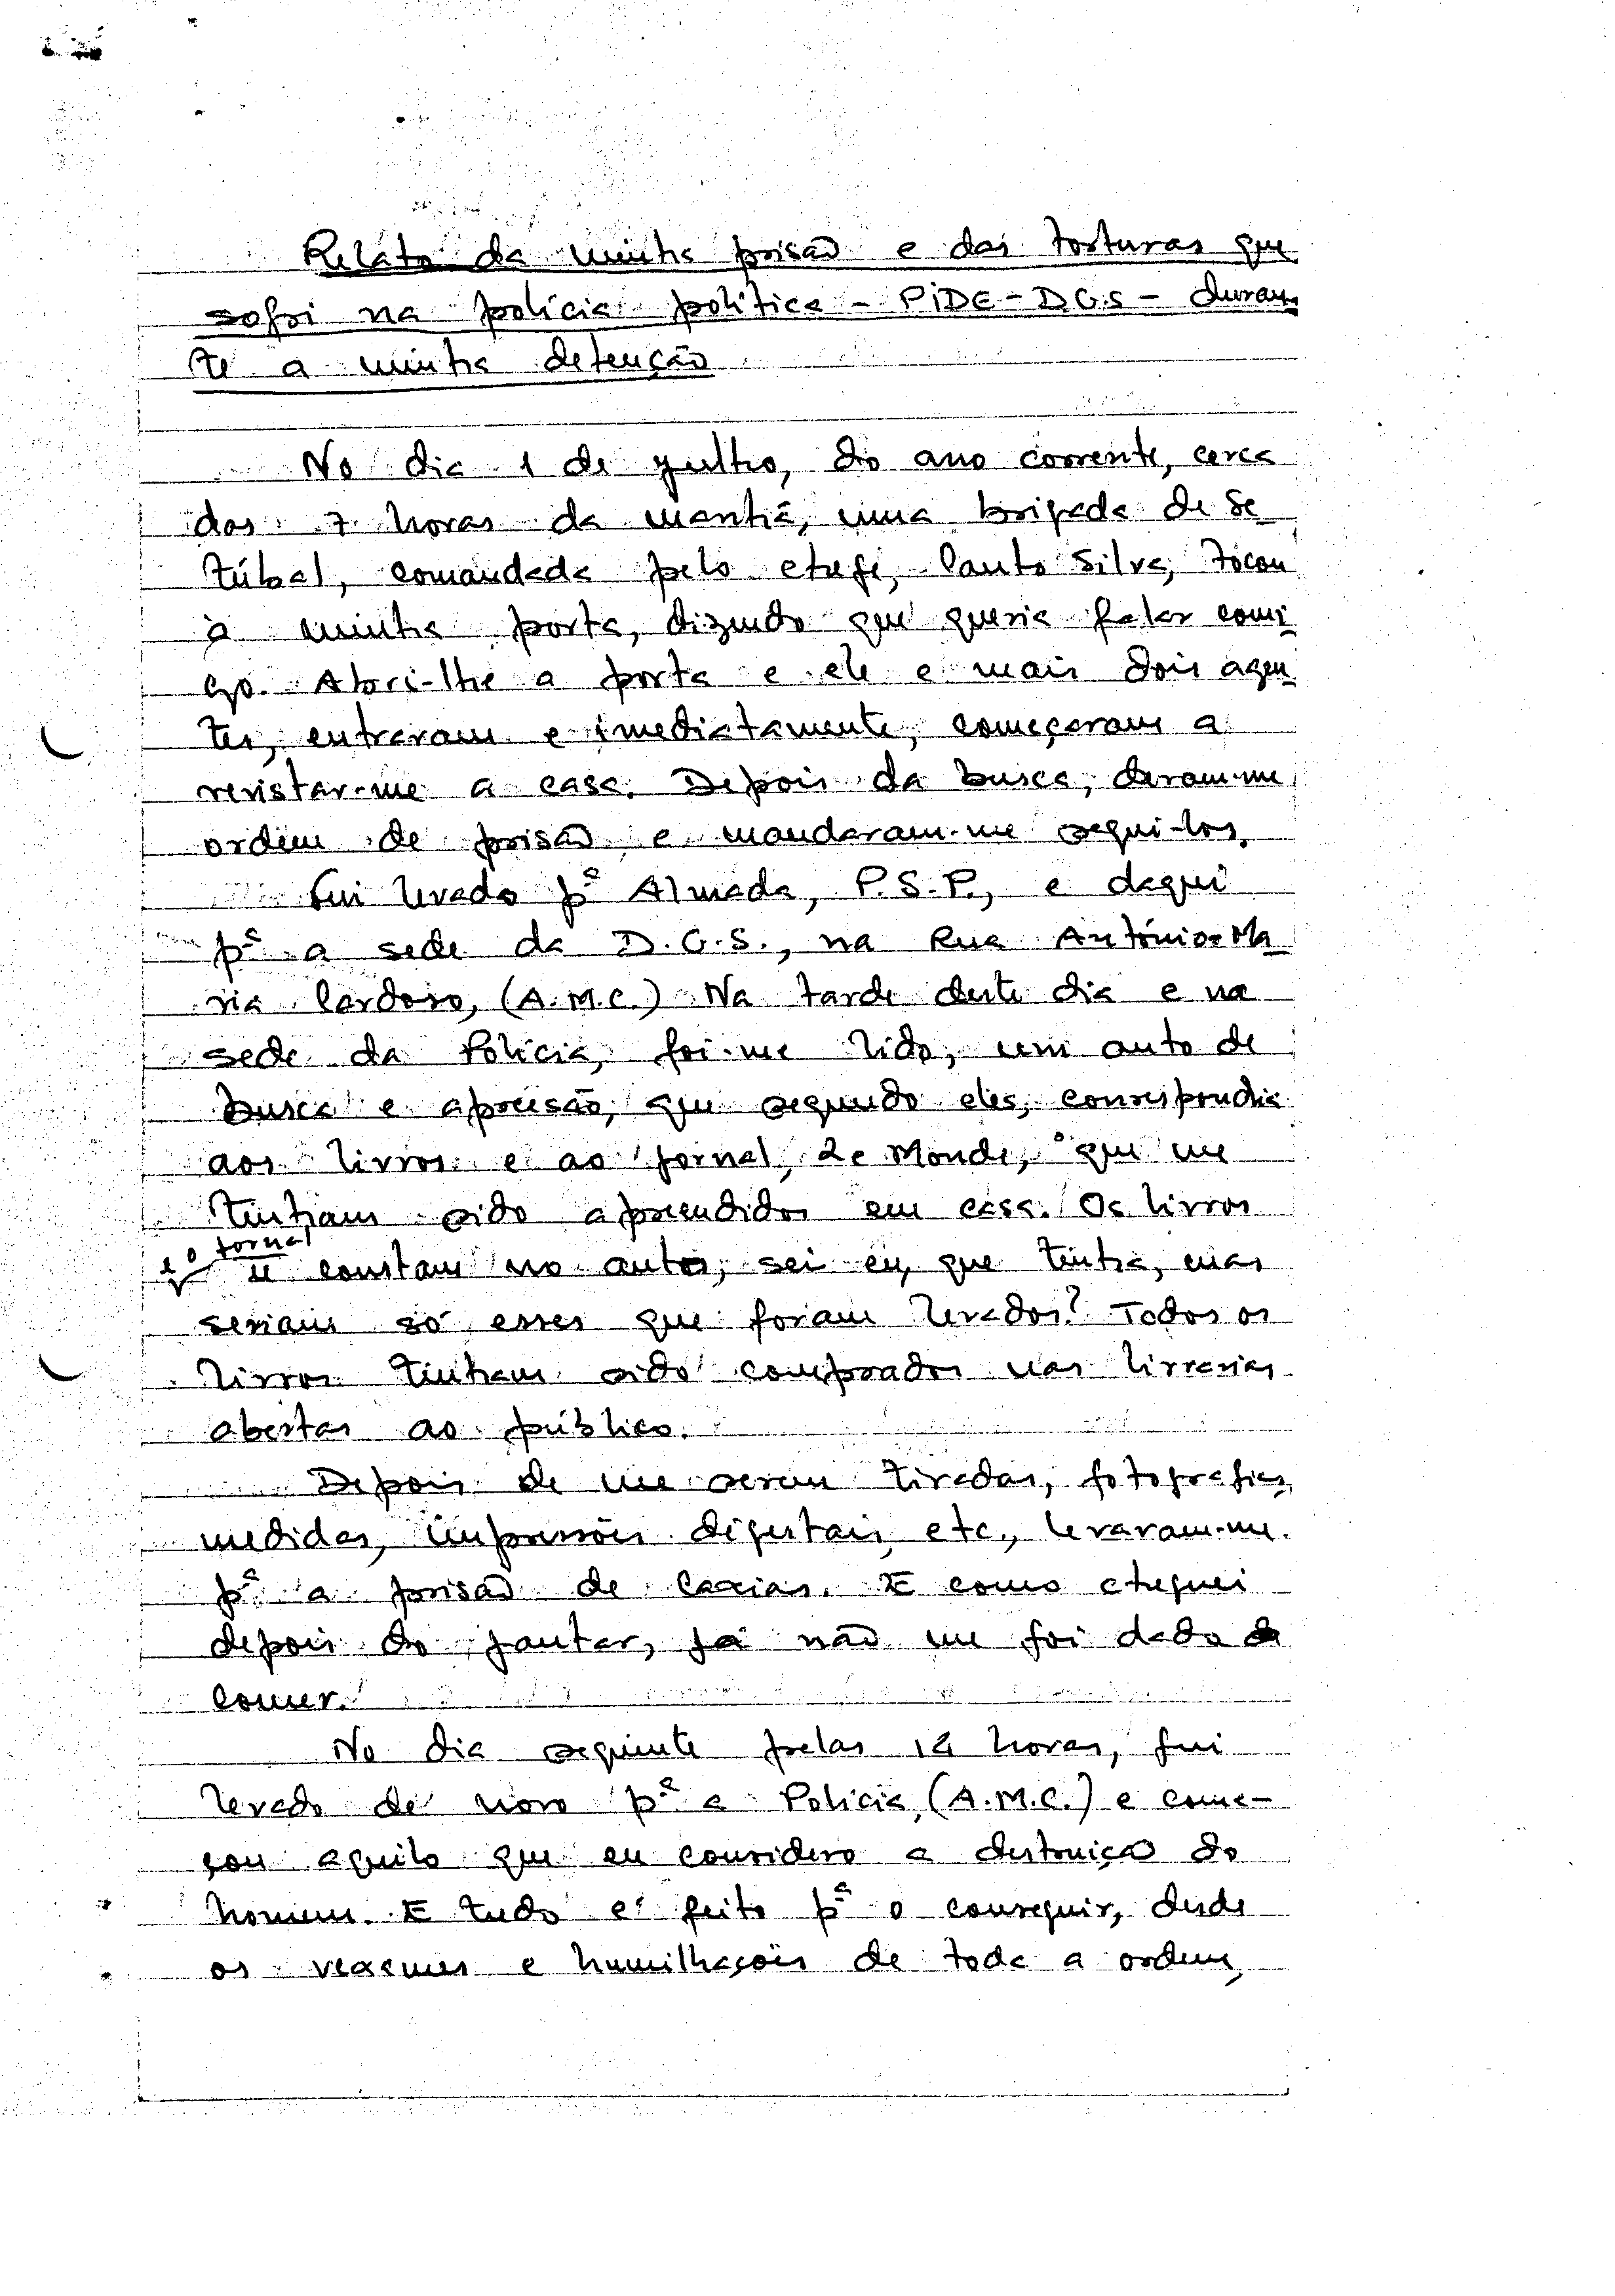 Relato da minha prisão e das torturas que
sofri na polícia política - PIDE-DGS - duran
te a minha detenção
No dia 1 de julho, do ano corrente, cerca
das 7 horas da manhã, uma brigada de Se
túbal, comandada pelo chefe, Canto Silva, tocou
à minha porta, dizendo que queria falar comi
go. Abri-lhe a porta e ele e mais dois agen
tes, entraram e imediatamente, começaram a
revistar-me a casa. Depois da busca, deram-me
ordem de prisão e mandaram-me segui-los.
Fui levado pª Almada, P.S.P., e daqui
pª a sede da D.G.S., na Rua António Ma
ria Cardoso, (A.M.C.) Na tarde deste dia e na
sede da Polícia, foi-me lido, um auto de
busca e apreensão, que segundo eles, correspondia
aos livros e ao jornal, Le Monde, que me
tinham sido apreendidos em casa. Os livros
e o jornal
q̃ constam no auto, sei eu, que tinha, mas
seriam só esses que foram levados? Todos os
livros tinham sido comprados nas livrarias
abertas ao público.
Depois de me serem tiradas, fotografias,
medidas, impressões digitais, etc., levaram-me
pª a prisão de Caxias. E como cheguei
depois do jantar, já não me foi dado de
comer.
No dia seguinte pelas 14 horas, fui
levado de novo pª a Polícia, (A.M.C.) e come-
çou aquilo que eu considero a destruição do
homem. E tudo é feito pª o conseguir, desde
os vexames e humilhações de toda a ordem,